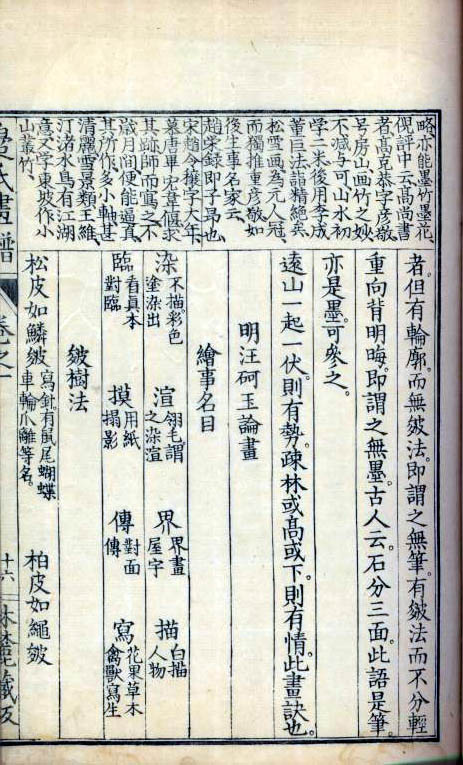 略亦能墨竹墨花
倪評中云高尚書
者高克恭字彥敬
号房山画竹之妙
不減与可山水初
学二米後用李成
董巨法詣精絶矣
松雪画為元人冠
而獨推重彥敬如
後生事名家云
趙宋録即子昂也
宋趙令穰字大年
摹唐畢宏韋偃求
其跡師而寫之不
歳月間便能逼真
其所作多小軸甚
清麗雪景類王維
汀渚水鳥有江湖
意又学東坡作小
山叢竹
者。但有輪廓。而無皴法。即謂之無筆。有皴法而不分輕
重向背明晦。即謂之無墨。古人云。石分三面。此語是筆。
亦是墨。可參之。
遠山一起一伏。則有勢。疎林或高或下。則有情。此畫訣也。
明汪砢玉論畫
繪事名目
染 不描彩色塗染出 渲 翎毛謂之染渲 界 界畫屋宇 描 白描人物
臨 看真本對臨 摸 用紙搨影 傳 對面傳 寫 花果草木禽獸寫生
皴樹法
松皮如鱗皴 寫針有鼠尾蝴蝶車輪爪離等名。 柏皮如繩皴
畫譜 卷之一 十六